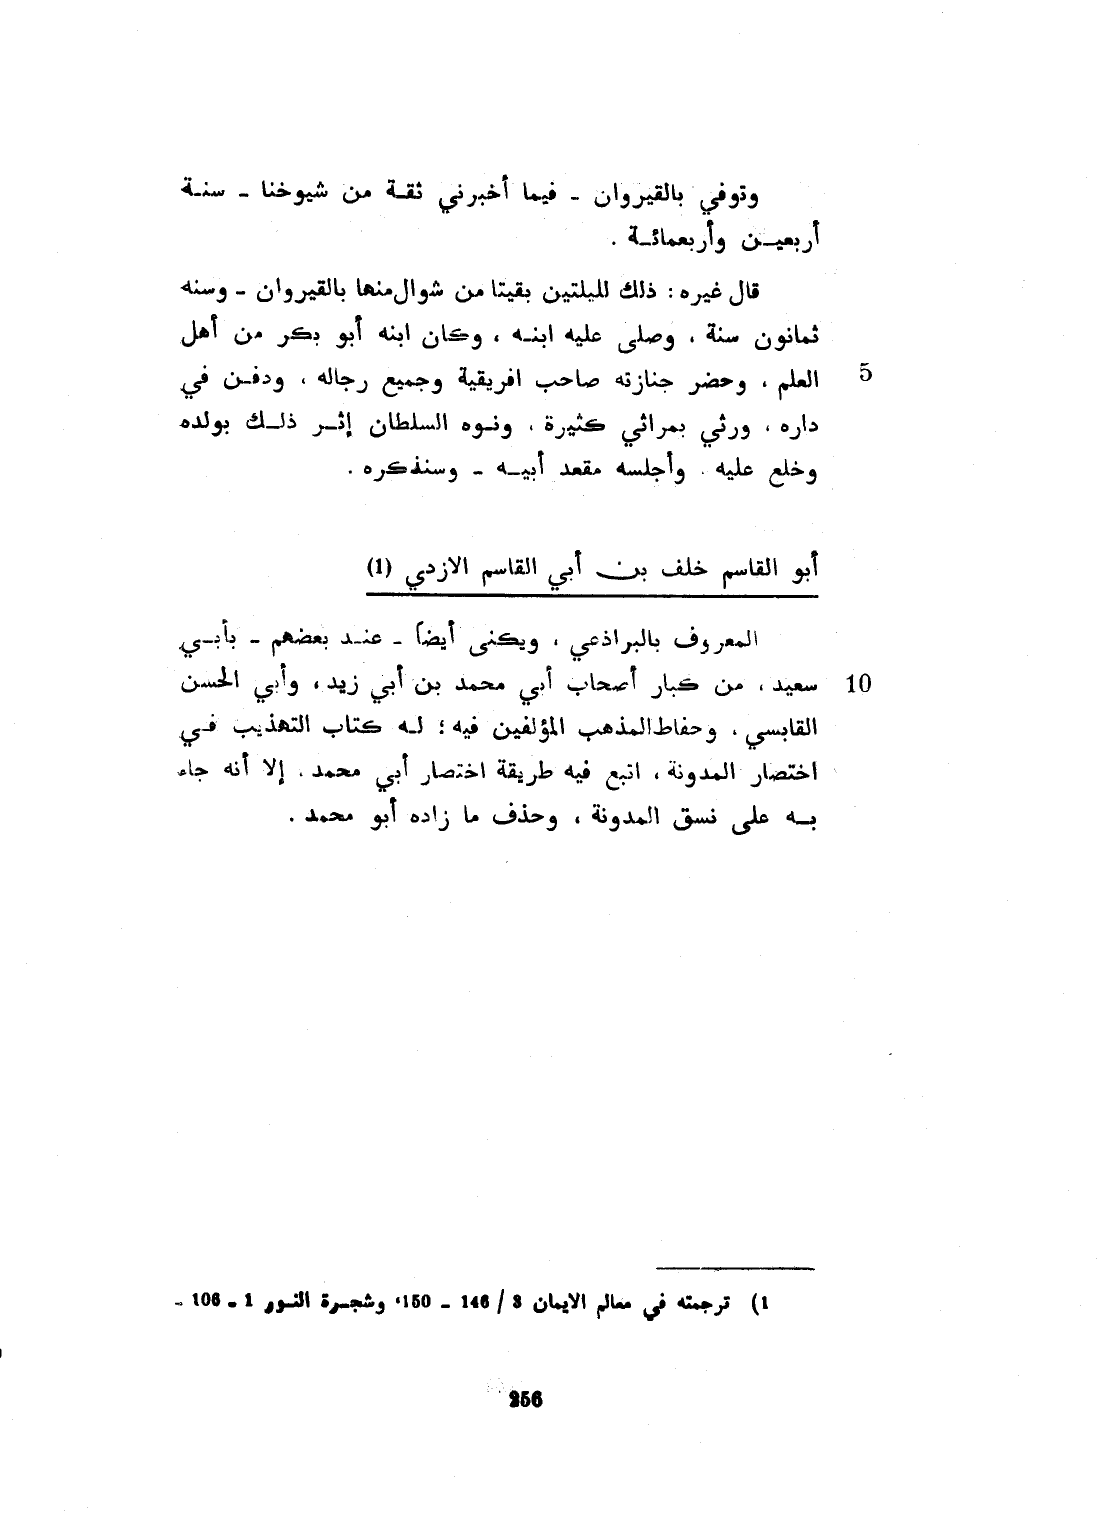 وتوفي بالقيروان - فيما أخبرني ثقة من شيوخنا - سنة
أربعين وأربعمائة .
قال غيره : ذلك لليلتين بقيتا من شوال منها بالقيروان - وسنه
ثمانون سنة ، وصلى عليه ابنه ، وكان ابنه أبو بكر من أهل
العلم ، وحضر جنازته صاحب افريقية وجميع رجاله ، ودفن في 5
داره ، ورثي بمراثي كثيرة ، ونوه السلطان إثر ذلك بولده
وخلع عليه . وأجلسه مقعد أبيه - وسنذكره .
أبو القاسم خلف بن أبي القاسم الازدي (1)
المعروف بالبراذعي ، ويكنى أيضاً - عند بعضهم - بأبي
سعيد ، من كبار أصحاب أبي محمد بن أبي زيد ، وأبي الحسن 10
القابسي ، وحفاظ المذهب المؤلفين فيه ؛ له كتاب التهذيب في
اختصار المدونة ، اتبع فيه طريقة اختصار أبي محمد . إلا أنه جاء
به على نسق المدونة ، وحذف ما زاده أبو محمد .
1) ترجمته في معالم الايمان 3 / 146 - 150، وشجرة النور 1 - 106 -
256